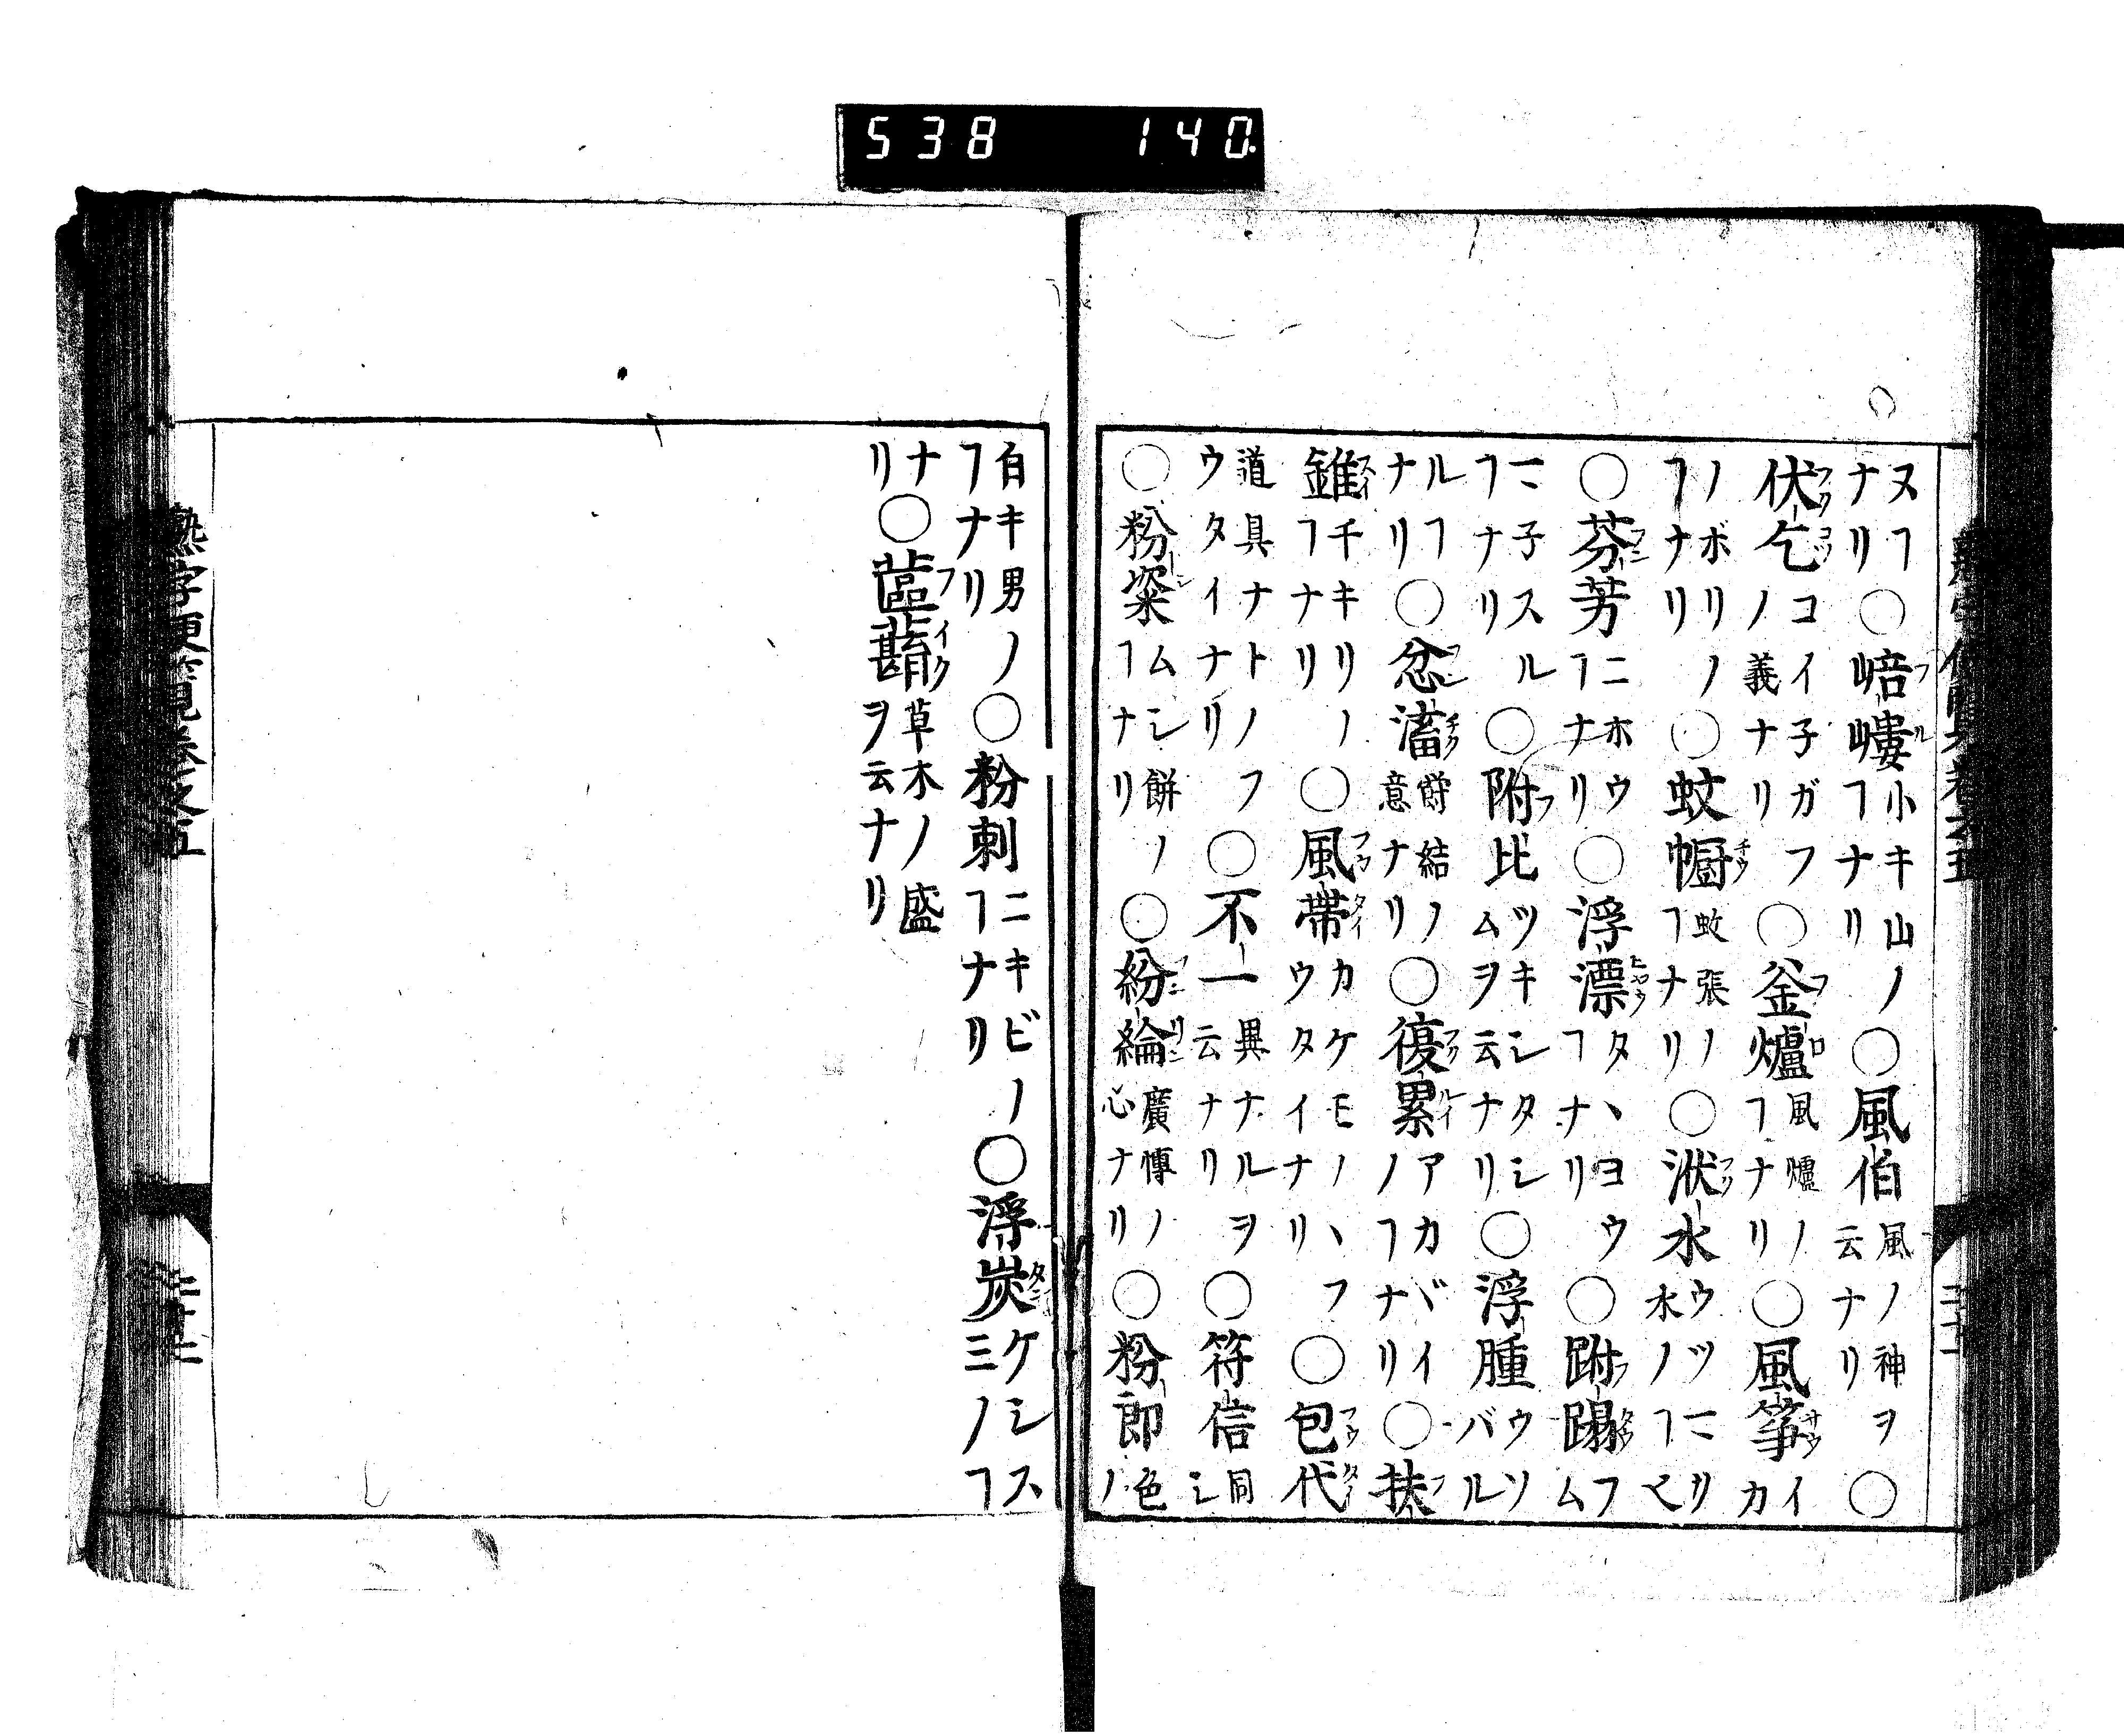 ヌヿナリ○㟝嶁小キ山ノヿナリ○風伯風ノ神ヲ云ナリ○
伏乞コイ子ガフノ義ナリ○釜爐風爐ノヿナリ○風箏イカ
ノボリノヿナリ○蚊幮蚊張ノヿナリ○洑水ウツマリ水ノヿ
○芬芳ニホウヿナリ○浮漂タヽヨウヿナリ○跗蹋フム
マ子スルヿナリ○附比ツキシタシムヲ云ナリ○浮腫ウソバル
ルヿナリ○忿滀欝結ノ意ナリ○復累アカバイノヿナリ○扶
錐チキリノヿナリ○風帯カケモノヽフウタイナリ○包代
道具ナトノフウタイナリ○不一異ナルヲ云ナリ○符信同シ
○粉粢ムシ餅ノヿナリ○紛綸廣博ノ心ナリ○粉郎色ノ
白キ男ノヿナリ○粉刺ニキビノヿナリ○浮炭ケシスミノヿ
ナリ○草木ノ盛ヲ云ナリ
熟字便覧巻之五
538 140